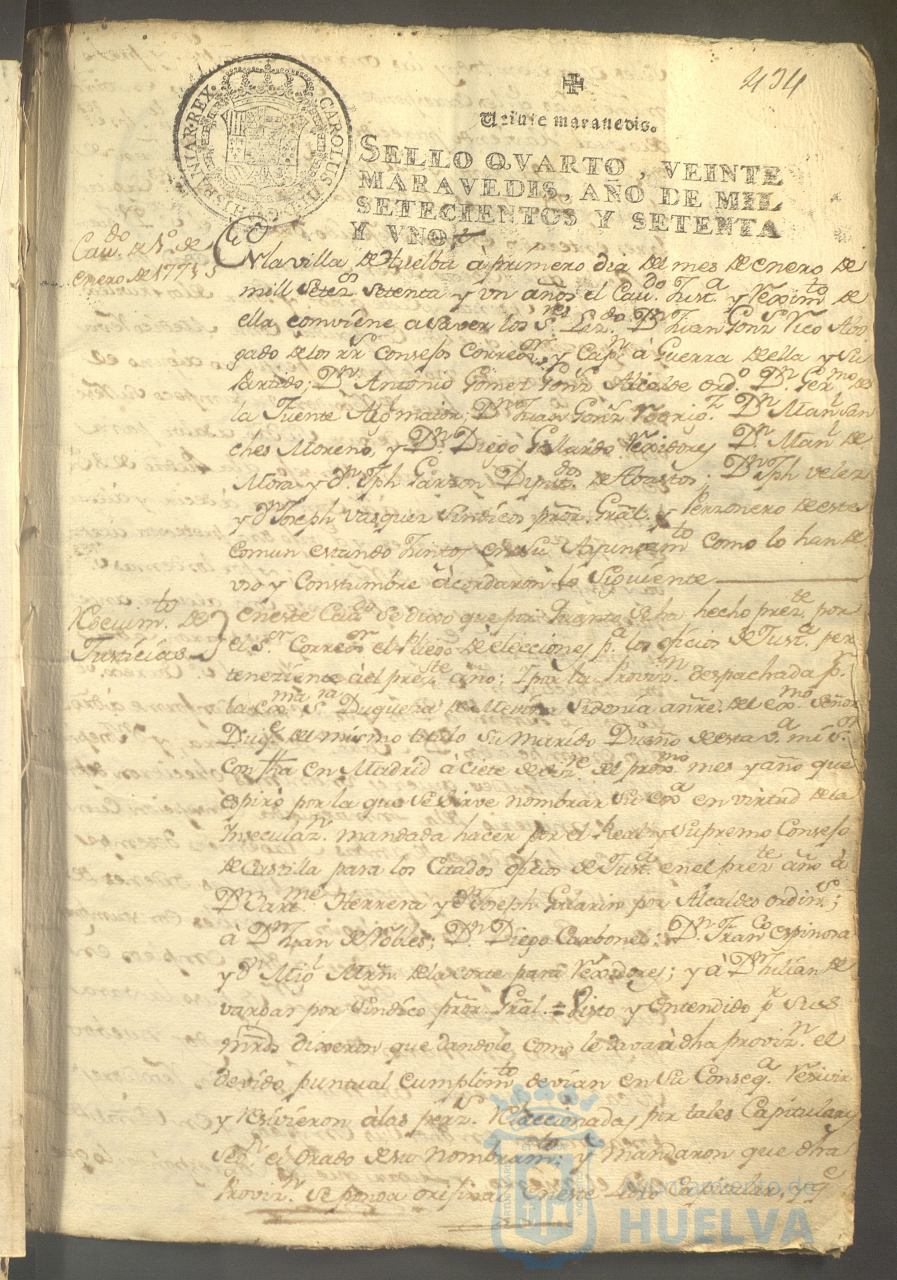 434
Veinte maravedis.
SELLO QVARTO, VEINTE
MARAVEDIS, AÑO DE MIL
SETECIENTOS Y SETENTA
Y VNO.
CAROLUS III D.G. HISPANIAR. REX
Cav.do de 1.o de
enero de 1771
En la villa de Huelba à primero dia de mes de enero de
mill Setez.s Setenta y un años el Cav.do Just.a y Reximto de
ella combiene a Saver los S.res Lez.do D.n Juan Gonz.s Rico Abo
gado de los R.s Consejos Correx.or y Cap.n à Guerra de ella y Su
Partido; D.n Antonio Gomez Gonz.s Alcalde ord.o D.n Ger.mo de
la Fuente Alg.l maior; D.n Juan Gonz.s Rodrig.z D.n Man.l San
ches Moreno, y D.n Diego Gallardo Rexidores D.n Man.l de
Mora y d.n Jph Garzon Diput.dos de Abastos; D.n Jph Velez
y d.n Joseph Vasquez Sindicos pror. Gral. y Perzonero de este
comun estando Juntos en su Ayuntam.to como lo han de
uso y Constumbre acordaron lo Siguiente
Reciuim.to de
Justicias
En este Cav.do Se dixo que por quanto se ha hecho prez.te por
el S.r Correx.or el Pliego de elecciones p.a los oficios de Just.a per
teneziente à el prez.te año; Y por la Proviz.n despachada p.r
la Ex.ma S.ra Duquesa de Medina Sidonia del Ex.mo Señor
Duq.e del mismo titulo Su marido Dueño de esta V.a mi S.or
Con fha en Madrid à Ciete de del prox.mo mes y año que
espiró por la que Se Sirve nombrar Su ex.a en virtud de la
Ynseculaz.n mandada hacer por el Real y Supremo Consejo
de Castilla para los Citados ofizios de Just.a en el prez.te año à
D.n Bart.me Herrera y d.n Joseph Guarin por Alcaldes ordin.s;
à D.n Juan de Robles; D.n Diego Carbonel; D.n Fran.co Espinosa
y d.n Mig.l Mrn. de la Corte para Rexidores; y à D.n Julian de
vargas por Sindico pror. Gral. = Visto y Entendido p.r Sus
mrds dixeron que dandole, como le davan à dha proviz.n el
devido, puntual Cumplim.to devian en Su Conseq.a Resivir
y resivieron à las perz.s Relaccionadas por tales Capitulares
Seg.n el Grado de su Nombram.to; y mandaron que dha
Proviz.n se ponga original En este Libro Capitular, y q.e
Ayuntamiento de
HUELVA